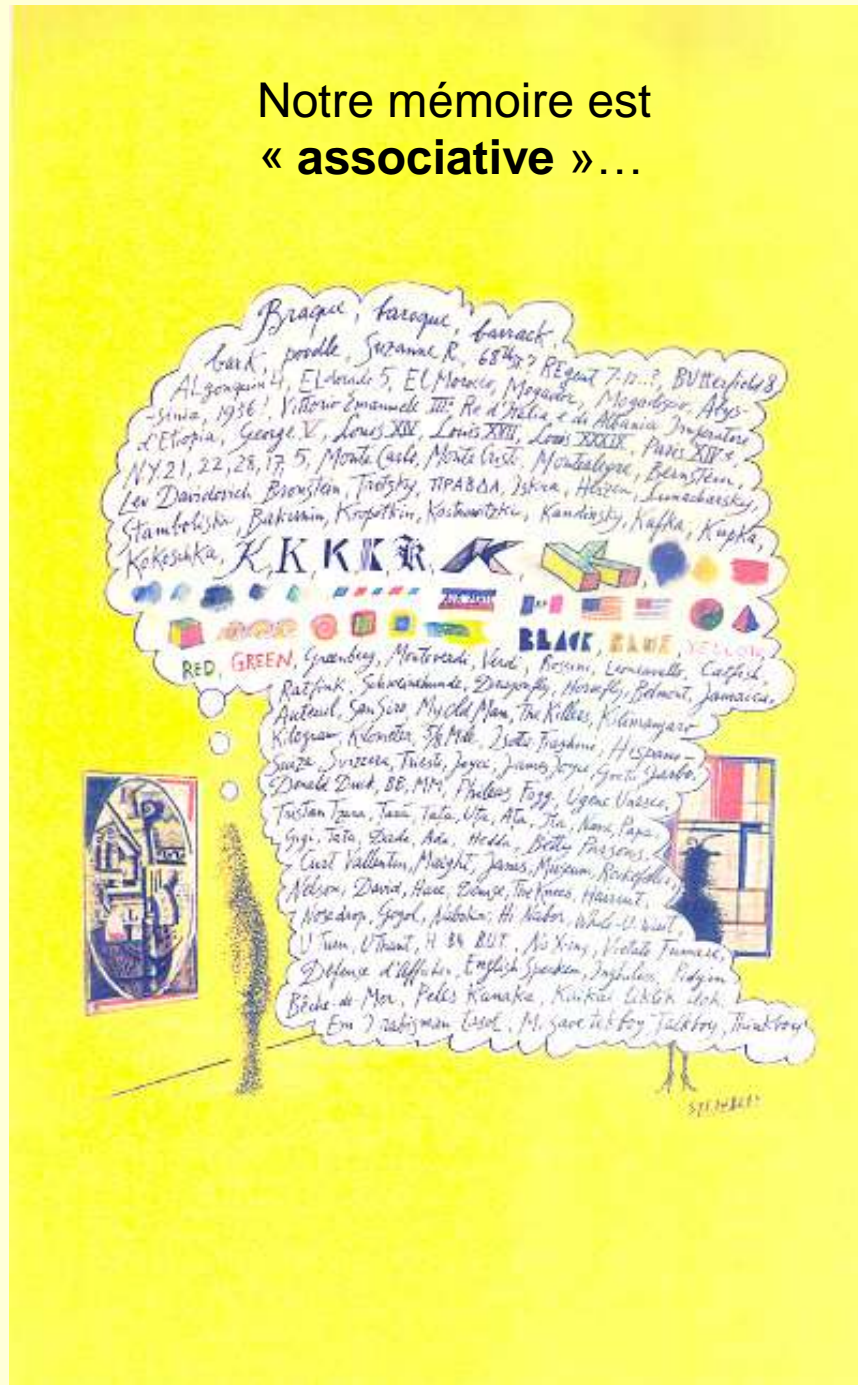 Notre mémoire est
« associative »…
Braque, baroque, barrack,
bark, poodle, Suzanne R., 68th St? REgent 7-12..?, BUtterfield 8
ALgonquin 4, ELdorado 5, El Morocco, Mogador, Mogadisqio, Abys-
-sinia, 1936!, Vittorio Emanuele III: Re d'Italia e di Albania Imperatore
d'Etiopia, George V, Louis XIV, Louis XVII, Louis XXXIX, Paris XIVe,
N.Y. 21, 22, 28, 17, 5, Monte Carlo, Monte Cristi, Montealegre, Bernstein,
Lev Davidovich Bronstein, Trotzky, ПРАВДА, Iskra, Herzen, Lunacharsky,
Stambolisky, Bakunin, Kropotkin, Kandinsky, Kafka, Kupka,
Kokoschka, K, K, K, K, K
BLACK, BLUE, YELLOW
RED, GREEN, Greenberg, Monteverdi, Verdi, Rossini, Leoncavallo, Catfish,
Ratfink, Schweinehunde, Dragonfly, Horsefly, Belmont, Jamaica,
Auteuil, San Siro, My Old Man, The Killers, Kilimanjaro
Kilogram, Kilometer, 5/8 Mile, Isotta Fraschini, Hispano-
Suiza, Svizzera, Trieste, Joyce, James Joyce, Greta Garbo,
Donald Duck, BB, MM, Phileas Fogg, Ugene Unesco,
Tristan Tzara, Tata, Uta, Ata, Nana, Papa,
Gigi, Tata, Dada, Ada, Hedda, Betty Parsons,
Curt Valentin, Maeght, Janis, Museum, Rockefeller,
Nelson, David, Hare, Denise, The Knees, Haircut,
Nosedrop, Gogol, Nabokov, Hi Nabor, While-U-Wait,
U Turn, U Thant, H. B4 BUT, No Xing, Vietato Fumare,
Défense d'afficher, English Spoken, Inghilesi, Pidgin
Bêche-de-Mer, Peles Kanaka, Kaikai
Talkboy, Thinkboy